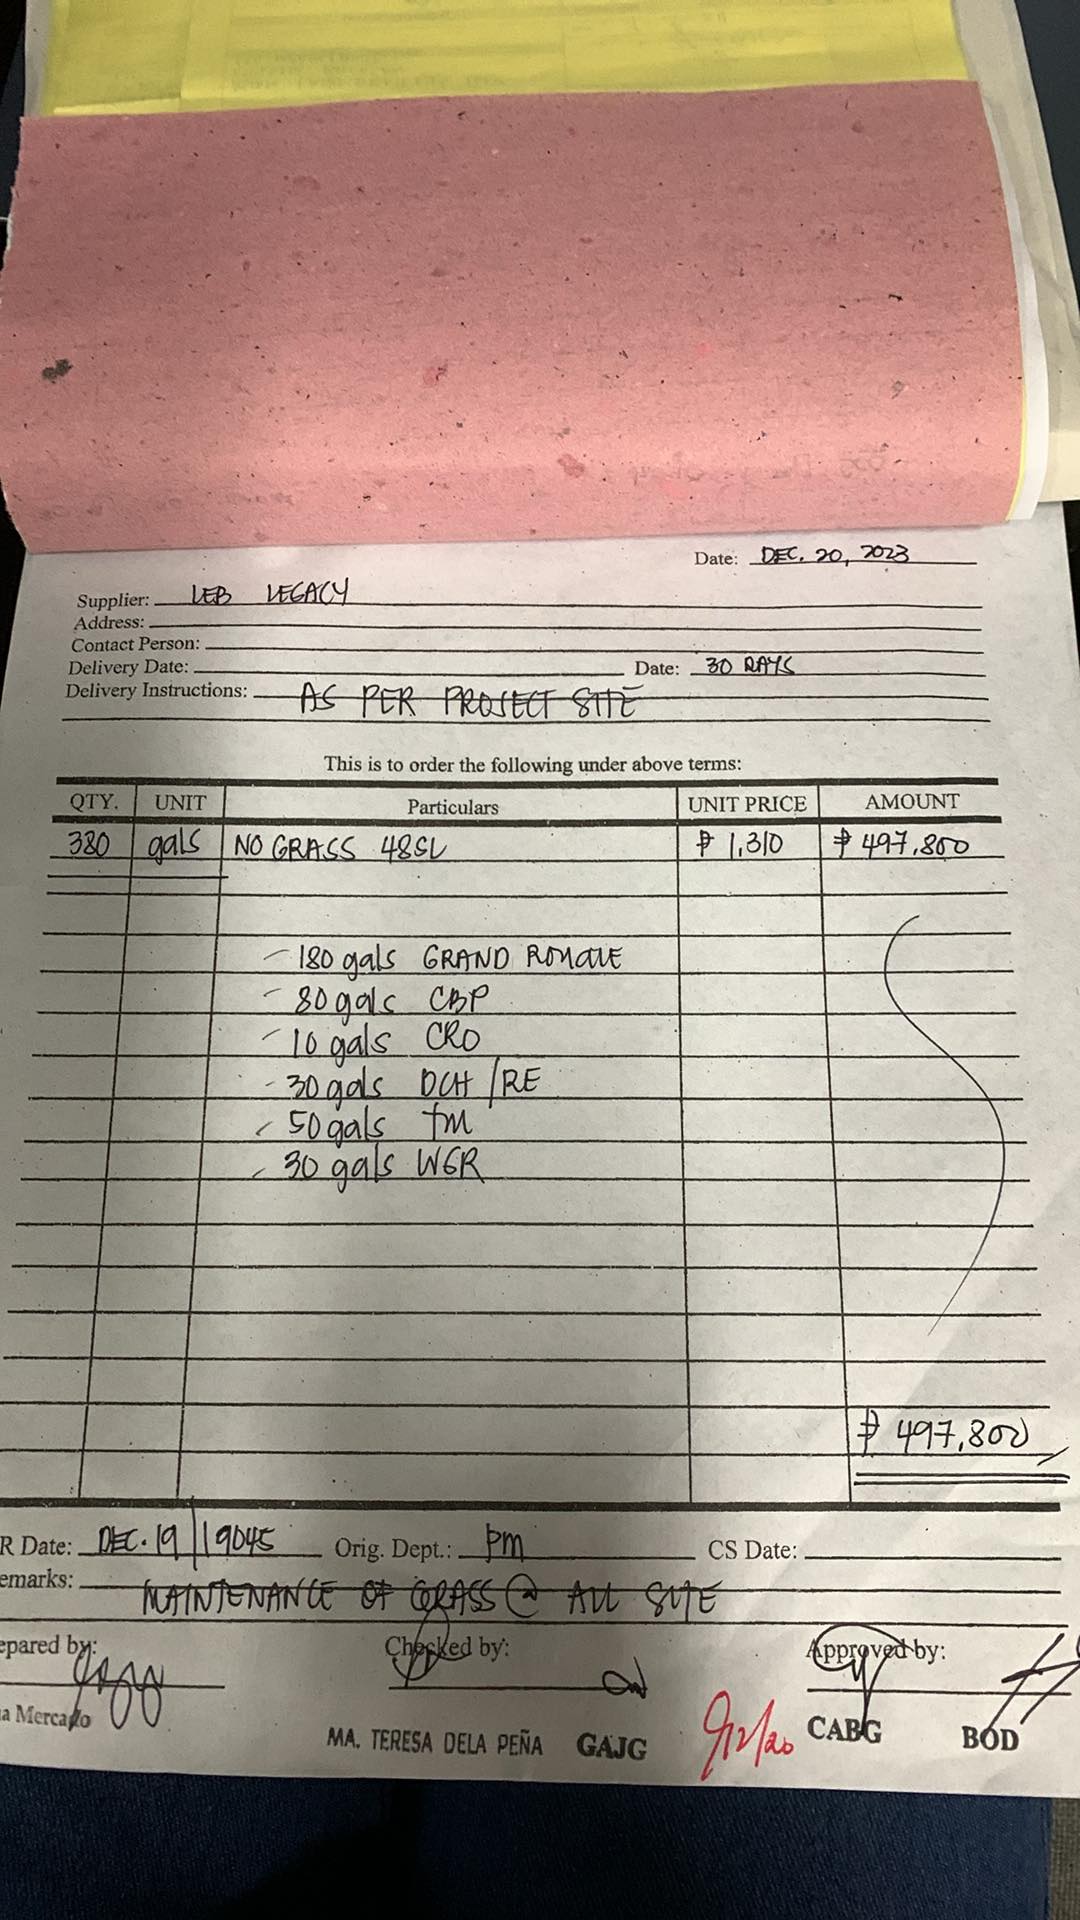 Date: DEC. 20, 2023
Supplier: LEB LEGACY
Address:
Contact Person:
Delivery Date: Date: 30 DAYS
Delivery Instructions: AS PER PROJECT SITE
This is to order the following under above terms:
QTY. UNIT Particulars UNIT PRICE AMOUNT
380 gals NO GRASS 48SL ₱ 1,310 ₱ 497,800
- 180 gals GRAND ROYALE
- 80 gals CBP
- 10 gals CRO
- 30 gals DCH/RE
- 50 gals TM
- 30 gals WGR
₱ 497,800
R Date: DEC. 19 / 19045 Orig. Dept.: PM CS Date:
emarks: MAINTENANCE OF GRASS @ ALL SITE
epared by: Checked by: Approved by:
a Mercado MA. TERESA DELA PEÑA GAJG 12/20 CABG BOD